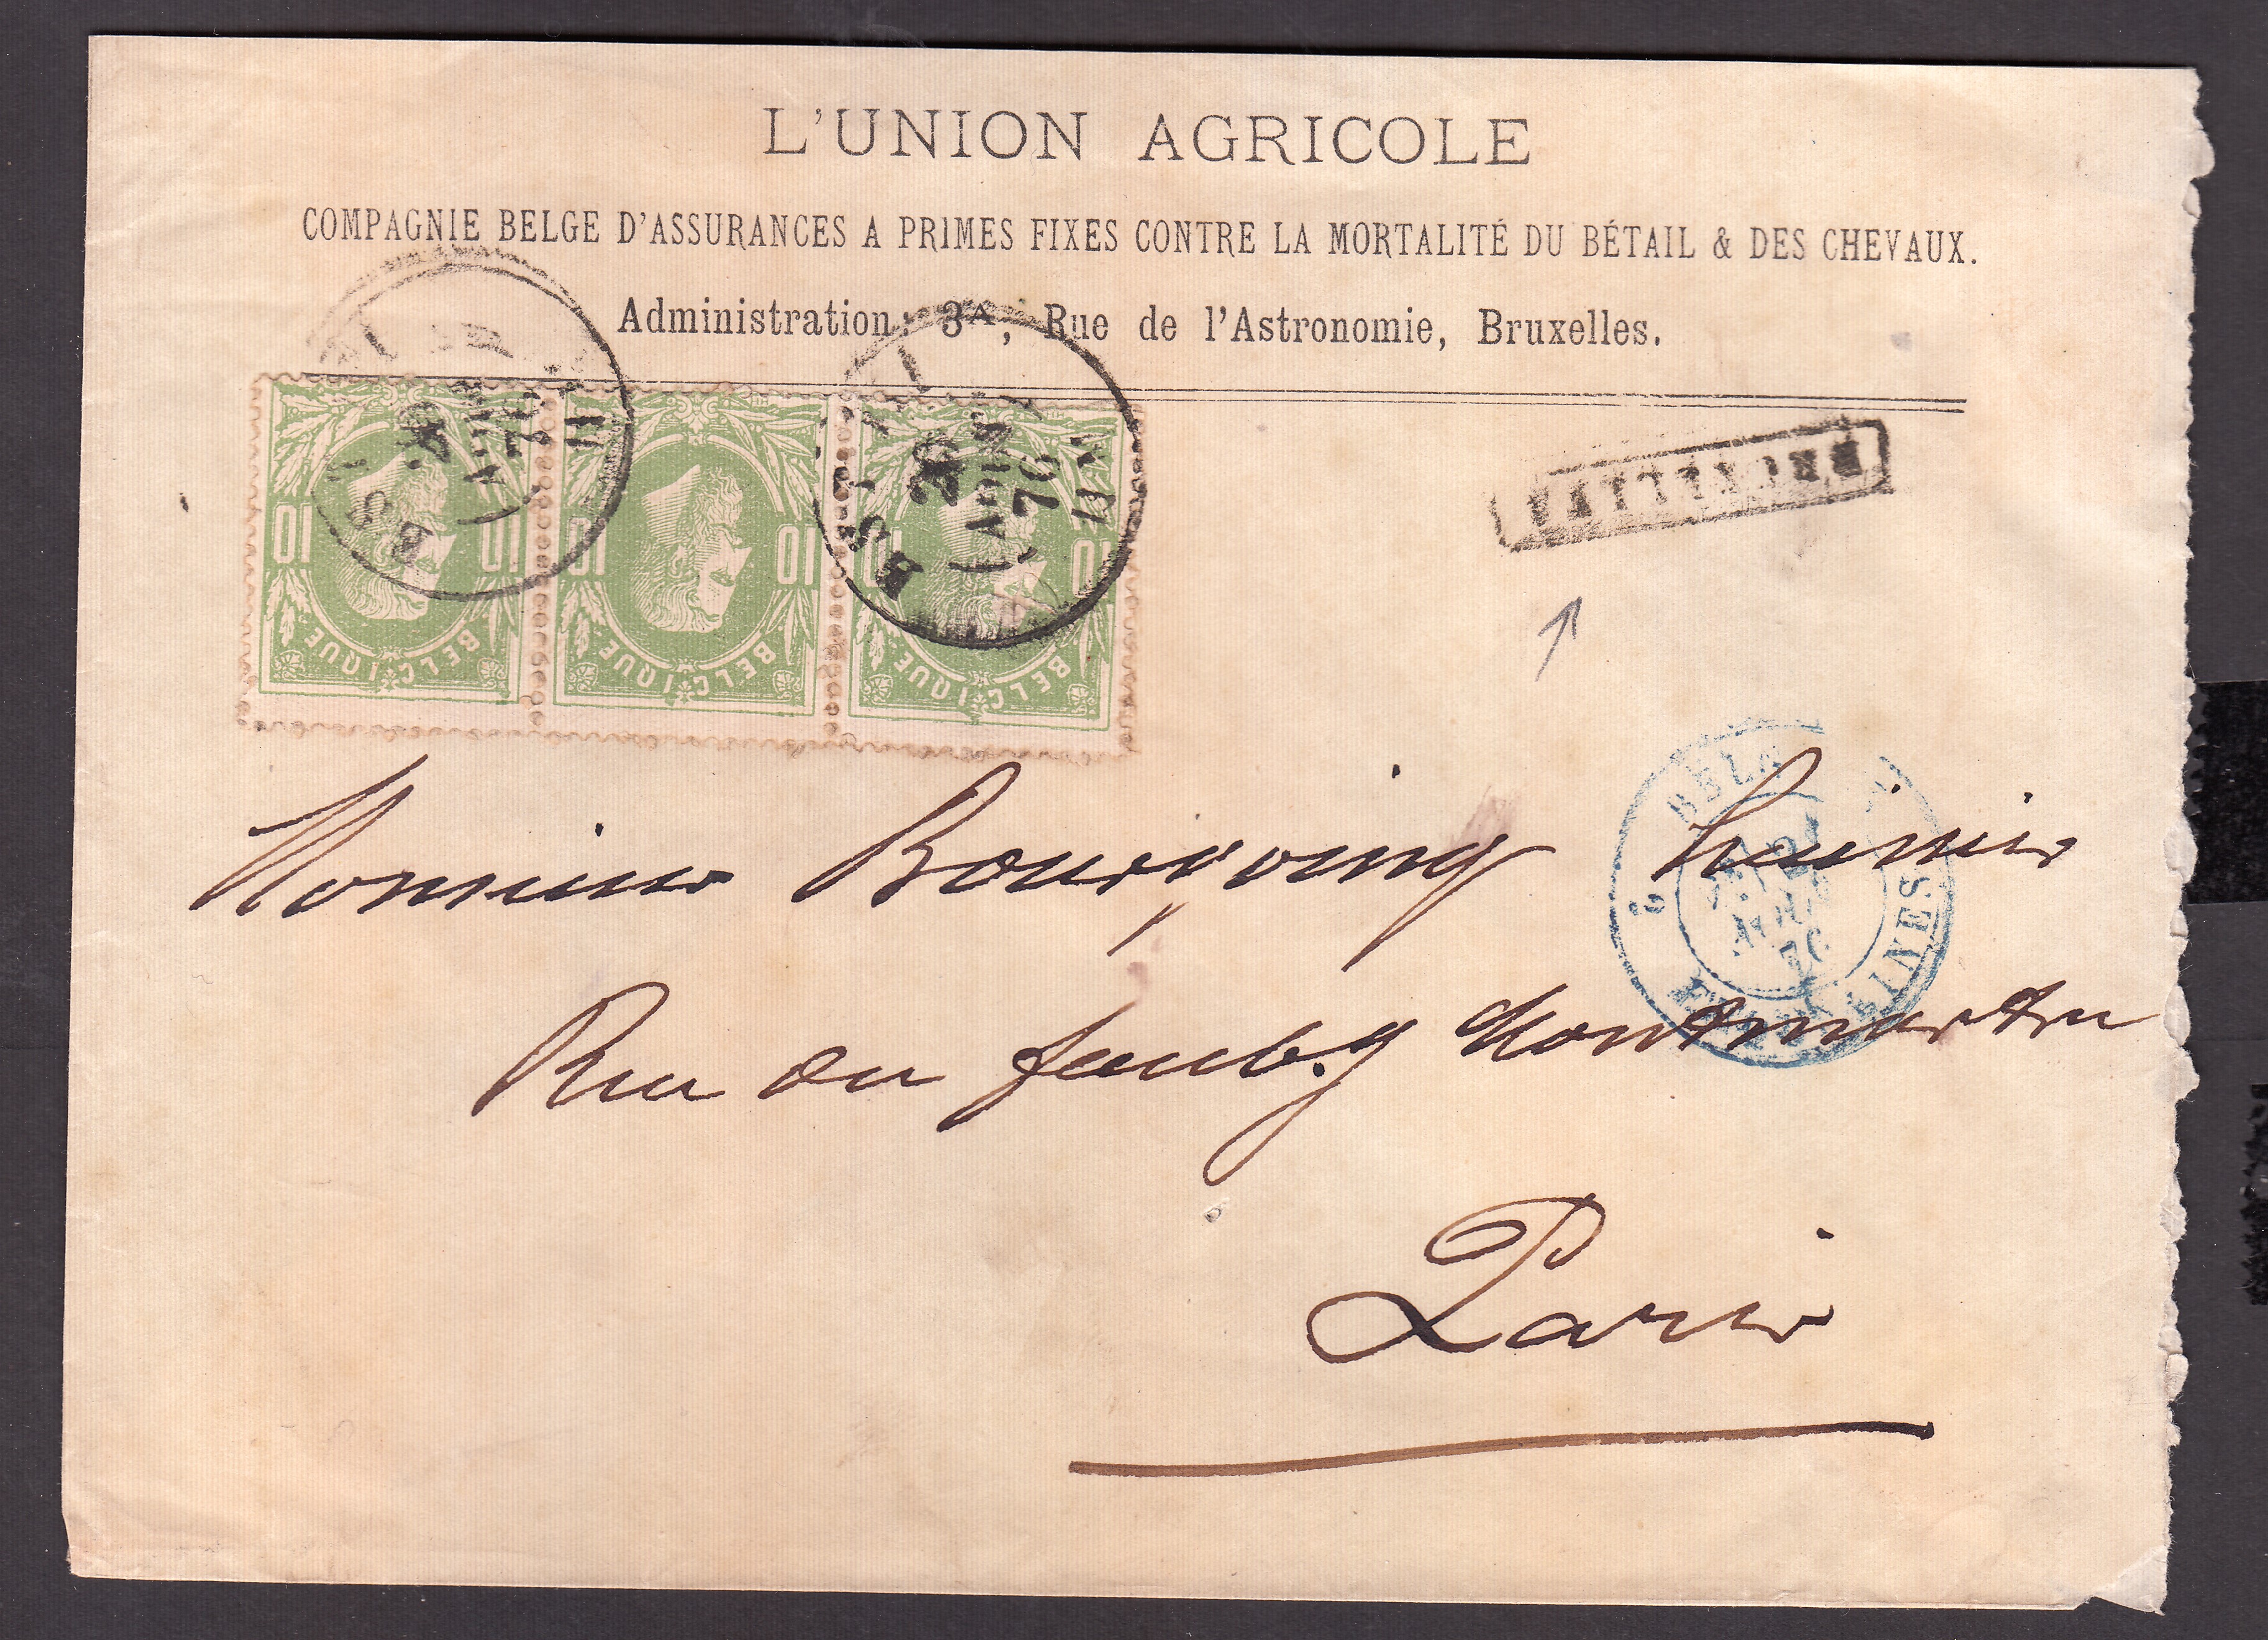 L'UNION AGRICOLE
COMPAGNIE BELGE D'ASSURANCES A PRIMES FIXES CONTRE LA MORTALITÉ DU BÉTAIL & DES CHEVAUX.
Administration: 3A, Rue de l'Astronomie, Bruxelles.
10 10 10 10 10 10
BELGIQUE BELGIQUE BELGIQUE
AVRIL
76
11
EST 1
20
AVRIL
76
11 M
BELG
2
AVRIL
76
Monsieur huissier
Rue du faubg Montmartre
Paris